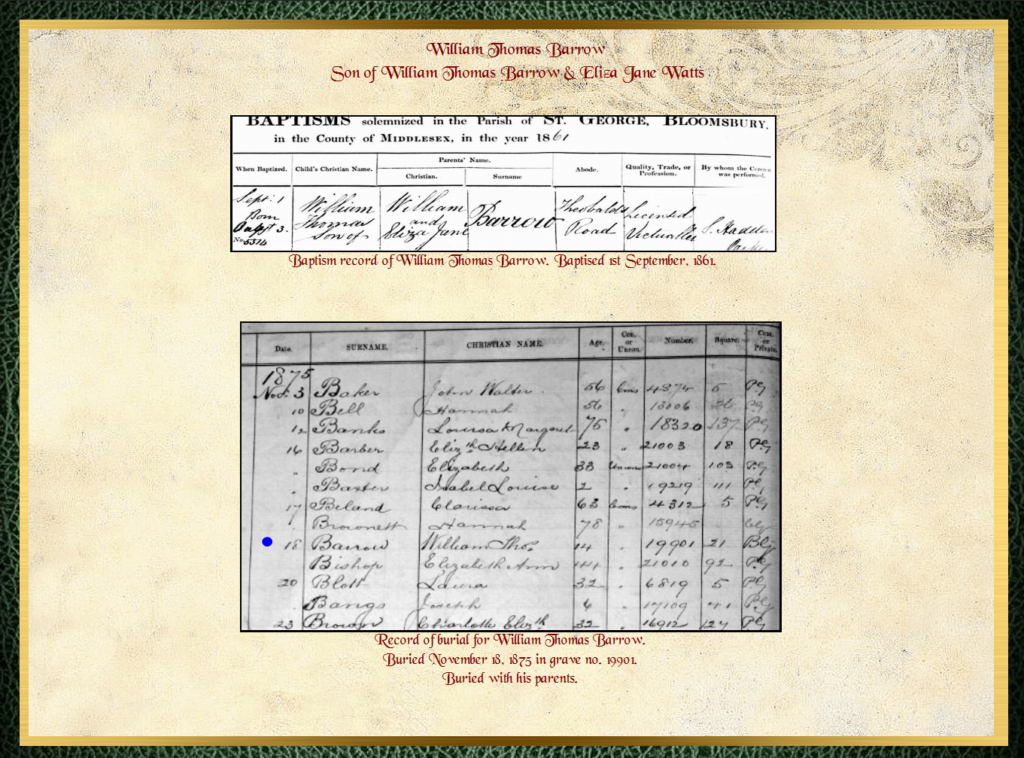 William Thomas Barrow
Son of William Thomas Barrow & Eliza Jane Watts
BAPTISMS solemnized in the Parish of ST. GEORGE, BLOOMSBURY,
in the County of MIDDLESEX, in the year 1861
When Baptized. Child's Christian Name. Parents' Name. Christian. Surname Abode. Quality, Trade, or Profession. By whom the was performed.
Sept. 1 William William Barrow Theobalds Licensed
Born Thomas and Road
3. Son of Eliza Jane
Baptism record of William Thomas Barrow. Baptised 1st September, 1861.
Date. SURNAME. CHRISTIAN NAME. Age. Con. or Uncon. Number. Square. Com. or Private.
1875
Nov. 3 Baker John Walter 56 Cons 4874 5
10 Bell Hannah 56 " 13006
12 Banks Louisa Margaret 76 " 18320 137
16 Barber Elizth Hellen 23 " 21003 18
" Bond Elizabeth 33 21004 103
" Baxter Isabel Louise 2 " 19219 111
17 Beland Clarissa 63 Cons 4312 5
Brownett Hannah 78 " 15945
18 Barrow William Thos 14 " 19901 21
Bishop Elizabeth Ann 44 " 21010 92
20 Blott Laura 32 " 6819 5
Bangs Joseph
23 Brown Charlotte Elizth 32 " 16912 127
Record of burial for William Thomas Barrow.
Buried November 18, 1875 in grave no. 19901.
Buried with his parents.